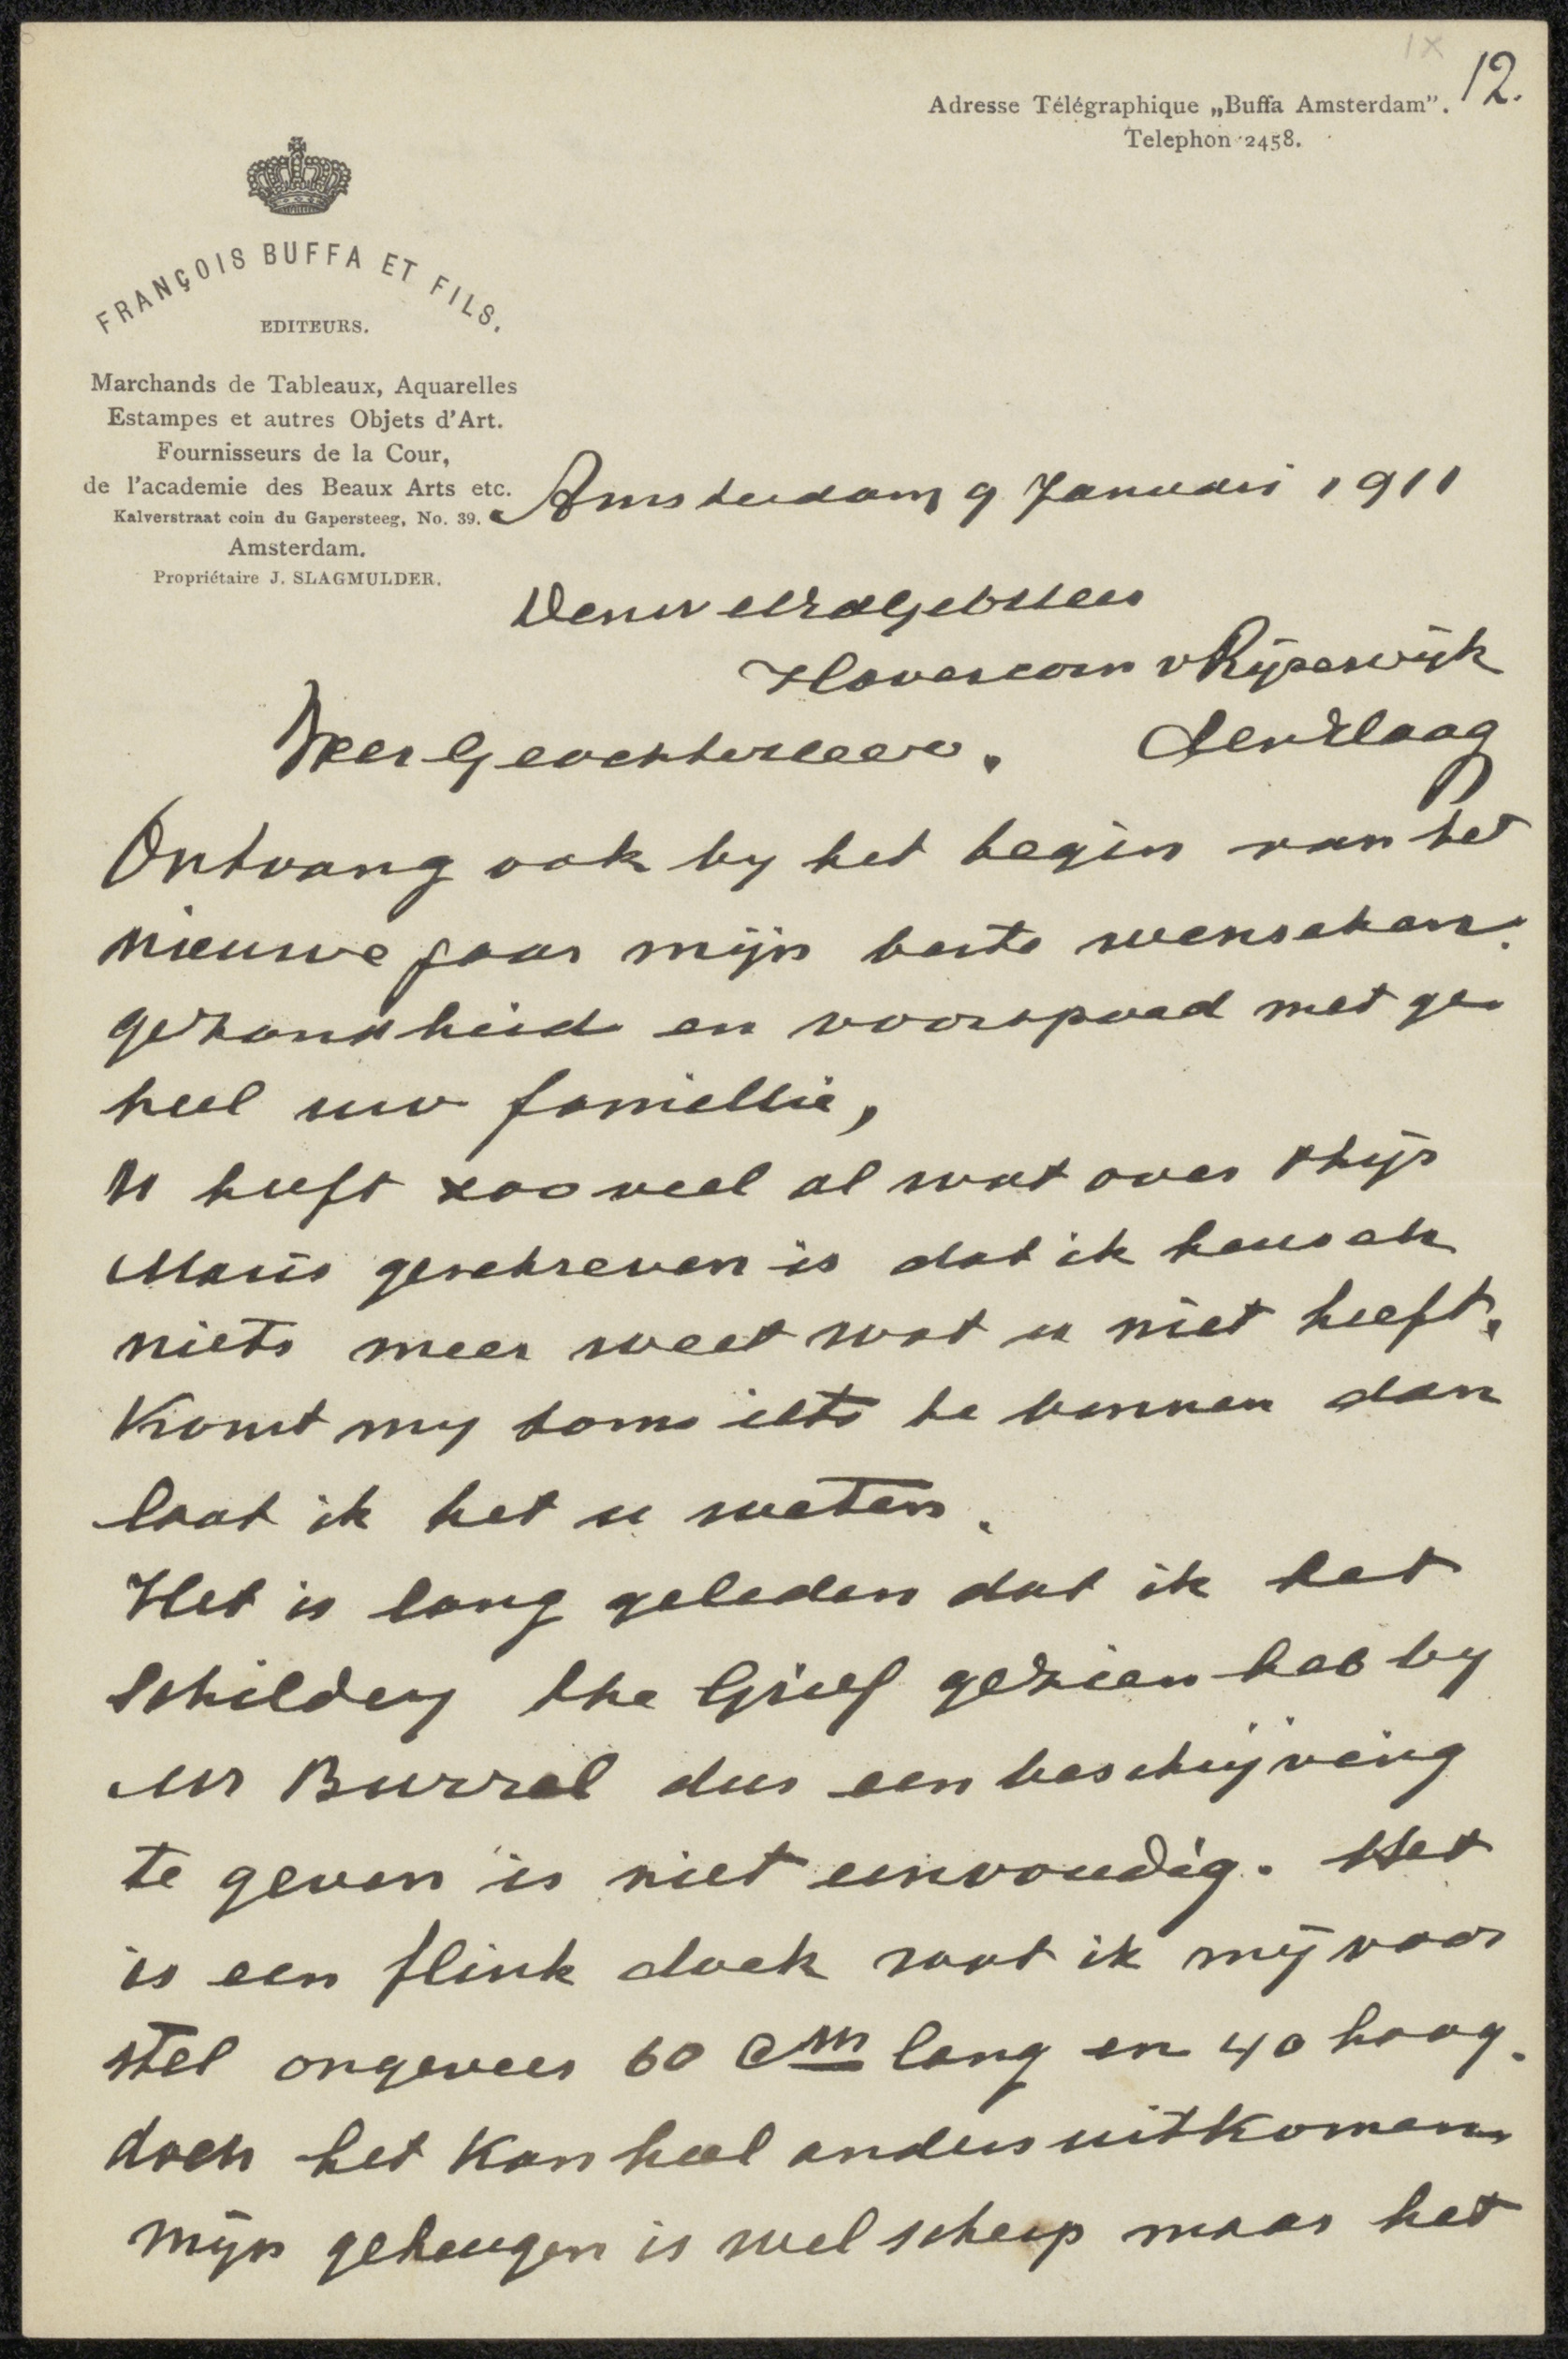 1x
12.
Adresse Télégraphique „Buffa Amsterdam”.
Telephon 2458.
FRANÇOIS BUFFA ET FILS.
EDITEURS.
Marchands de Tableaux, Aquarelles
Estampes et autres Objets d'Art.
Fournisseurs de la Cour,
de l'academie des Beaux Arts etc.
Kalverstraat coin du Gapersteeg, No. 39.
Amsterdam.
Propriétaire J. SLAGMULDER.
Amsterdam 9 Januari 1911
Den weledelgeb Heer
Haverkorn v Rijsewijk
Den Haag
Zeer Geachte Heer.
Ontvang ook by het begin van het
nieuwe jaar mijn beste wenschen.
gezondheid en voorspoed met ge-
heel uw famiellie,
U heeft zooveel al wat over Thijs
Maris geschreven is dat ik heusch
niets meer weet wat u niet heeft.
Komt my soms iets te binnen dan
laat ik het u weten.
Het is lang geleden dat ik het
Schildery the Grief gezien heb by
Mr Burrel dus een beschrijving
te geven is niet eenvoudig. Het
is een flink doek wat ik mij voor
stel ongeveer 60 cm lang en 40 hoog.
doch het kan heel anders uitkomen
mijn geheugen is wel scherp maar het